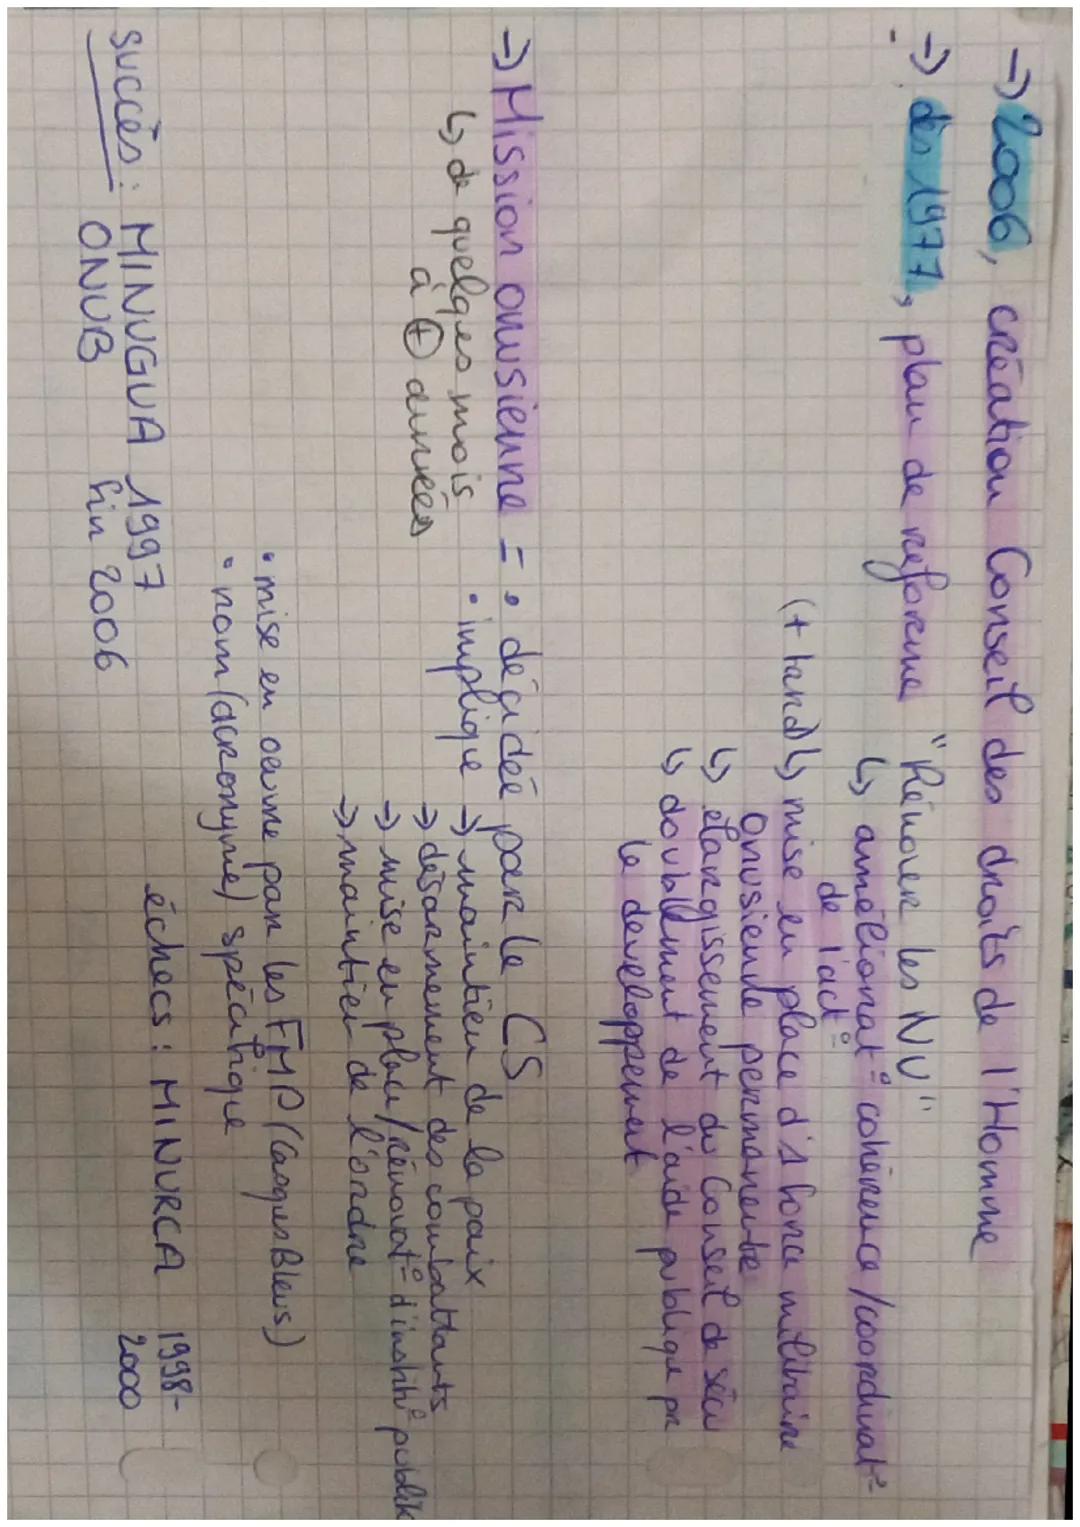 → 2006, création Conseil des droits de l'Homme
→ dès 1977, plan de réforme "Rénover les NU"
↳ améliorat° cohérence/coordinat°
de l'act°
(+ tard) ↳ mise en place d'1 force militaire
onusienne permanente
↳ élargissement du Conseil de sécu
↳ doublement de l'aide publique pr
le developpement
→ Mission onusienne = • décidée par le CS
↳ de quelques mois
à + années
• implique → maintien de la paix
→ désarmement des combattants
→ mise en place/rénovat° d'instit° publik
→ maintien de l'ordre
• mise en oeuvre par les FMP (Casques Bleus)
• nom (acronyme) spécifique
succès : MINUGUA 1997
ONUB fin 2006
échecs : MINURCA 1998-
2000